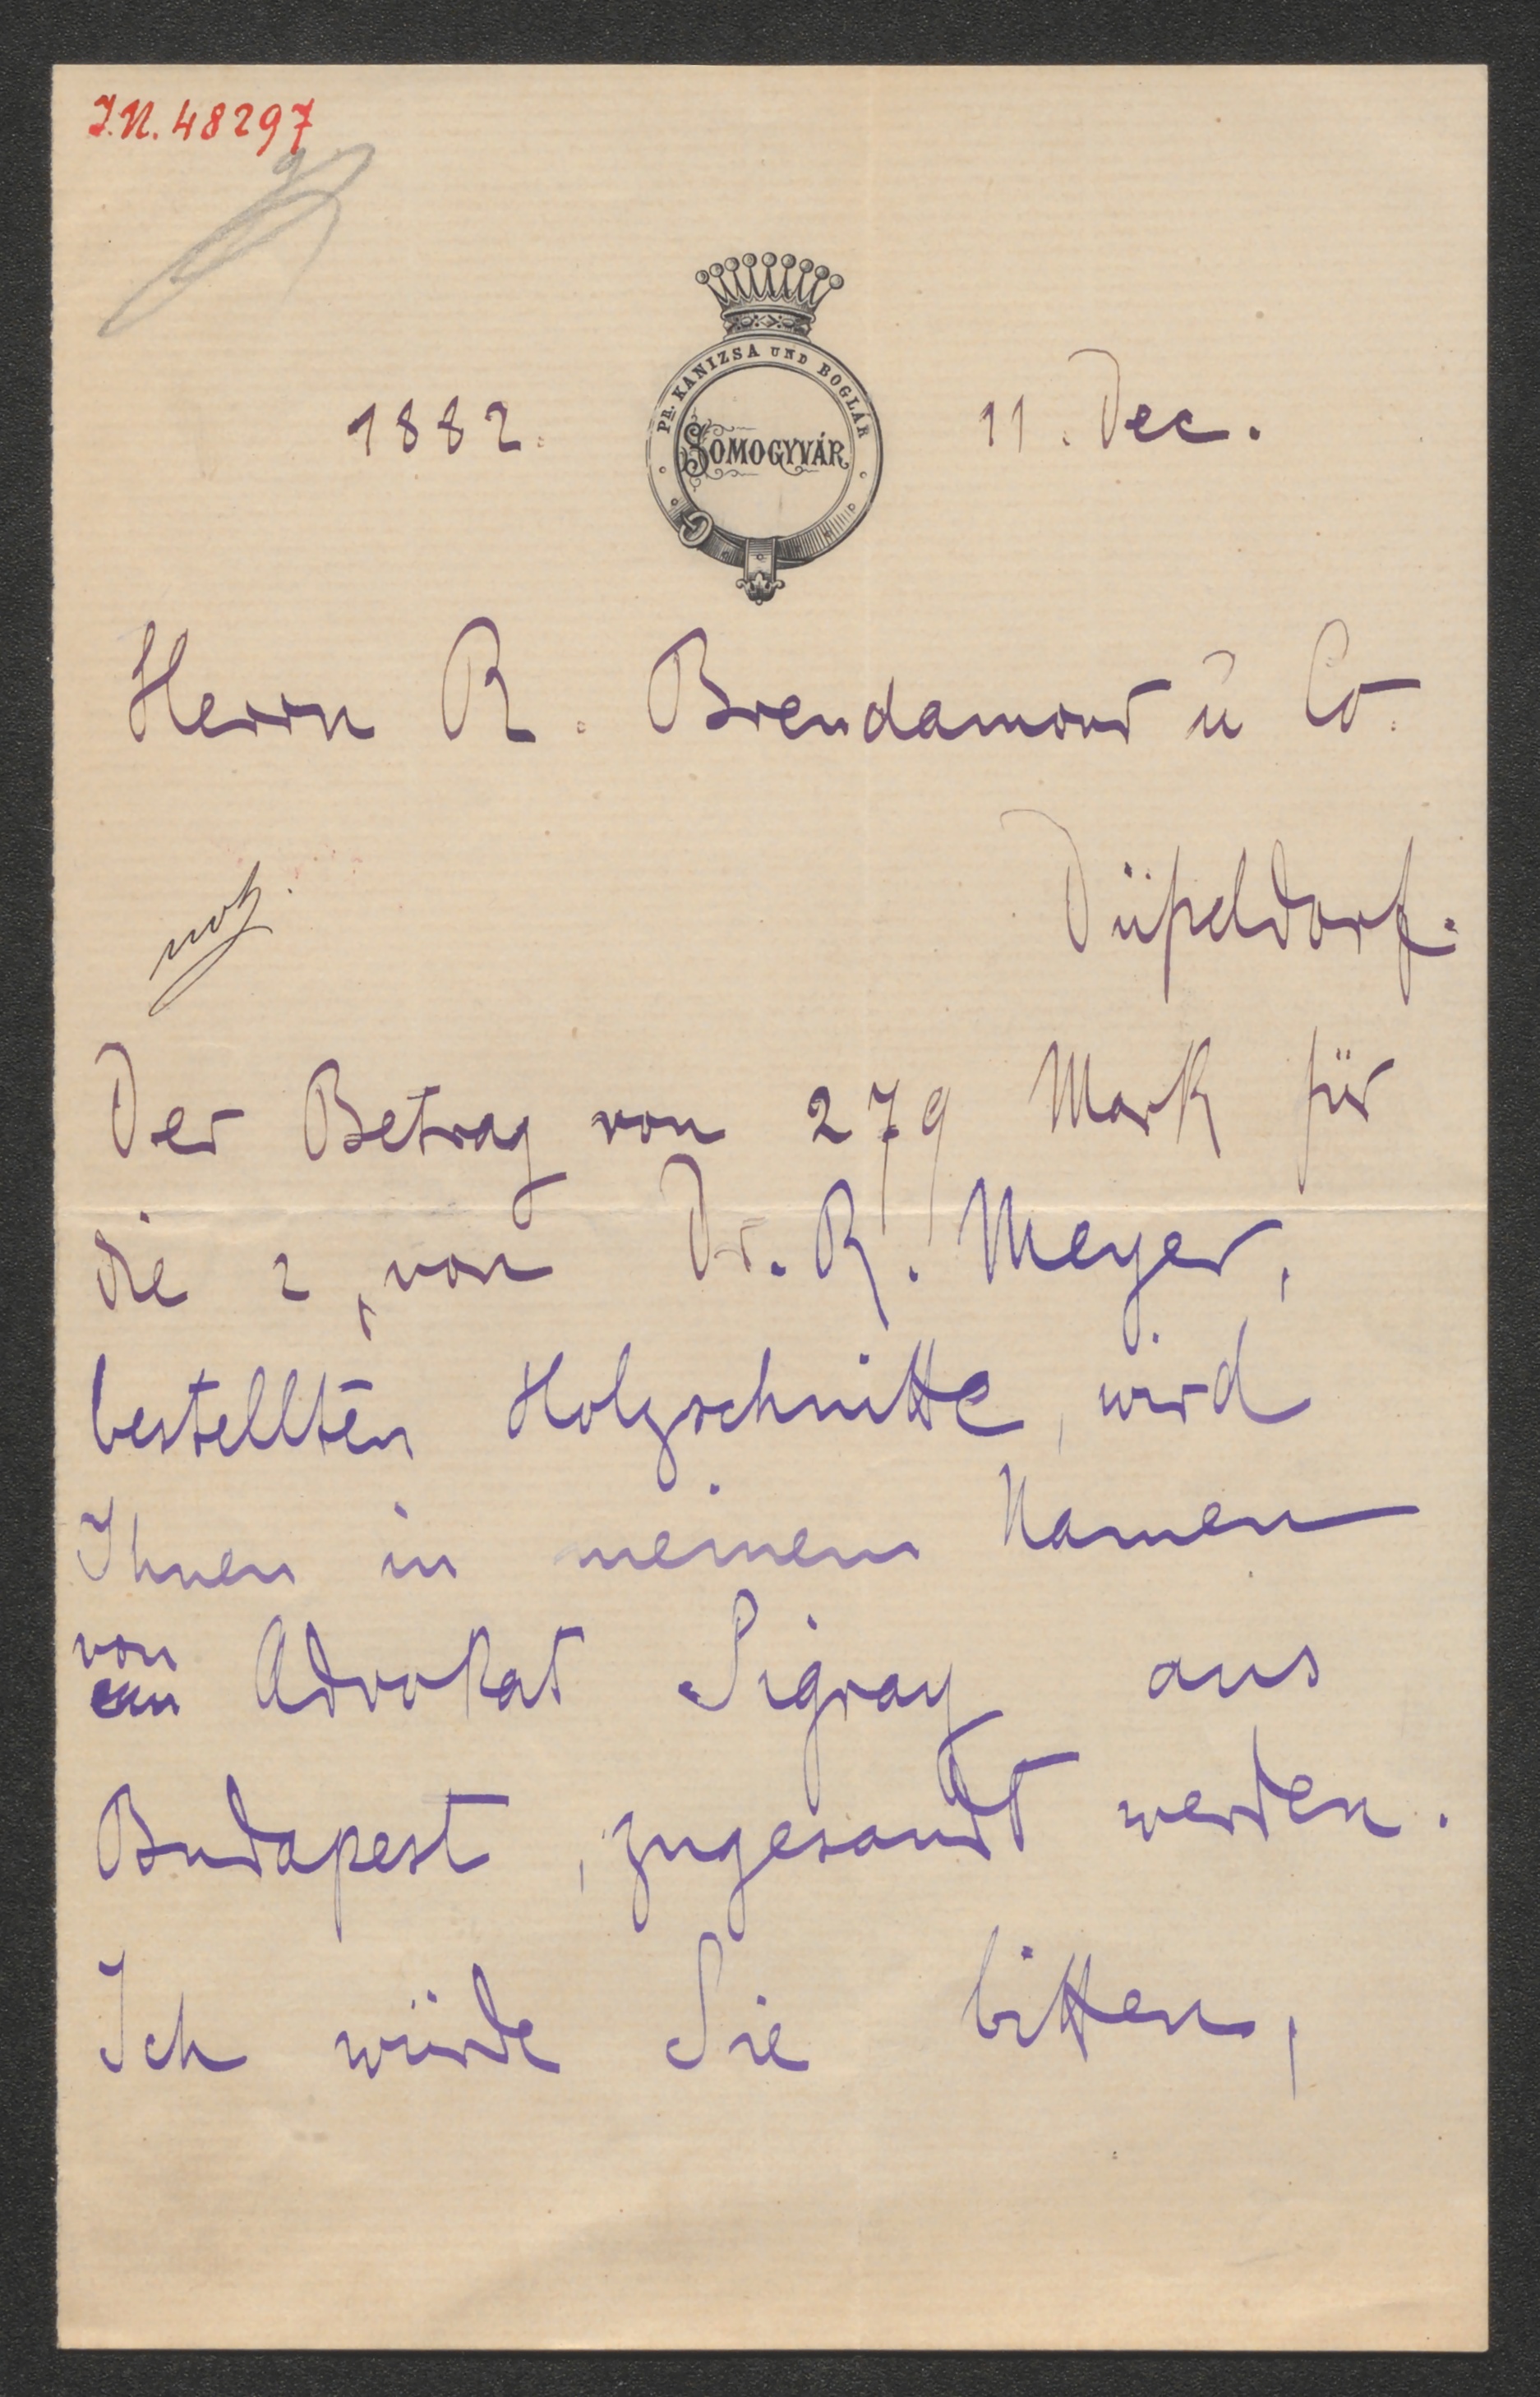 I.N. 48297
PR. KANIZSA UND BOGLÁR
1882. SOMOGYVÁR 11. Dec.
Herrn R. Brendamour ū Co.
Düßeldorf.
notz.
Der Betrag von 279 Mark für
die 2, von Dr. R. Meyer,
bestellten Holzschnitte, wird
Ihnen in meinem Namen
von
Advokat Sigray aus
Budapest, zugesandt werden.
Ich würde Sie bitten,